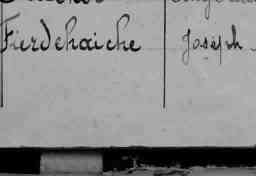 Fierdehaiche Joseph